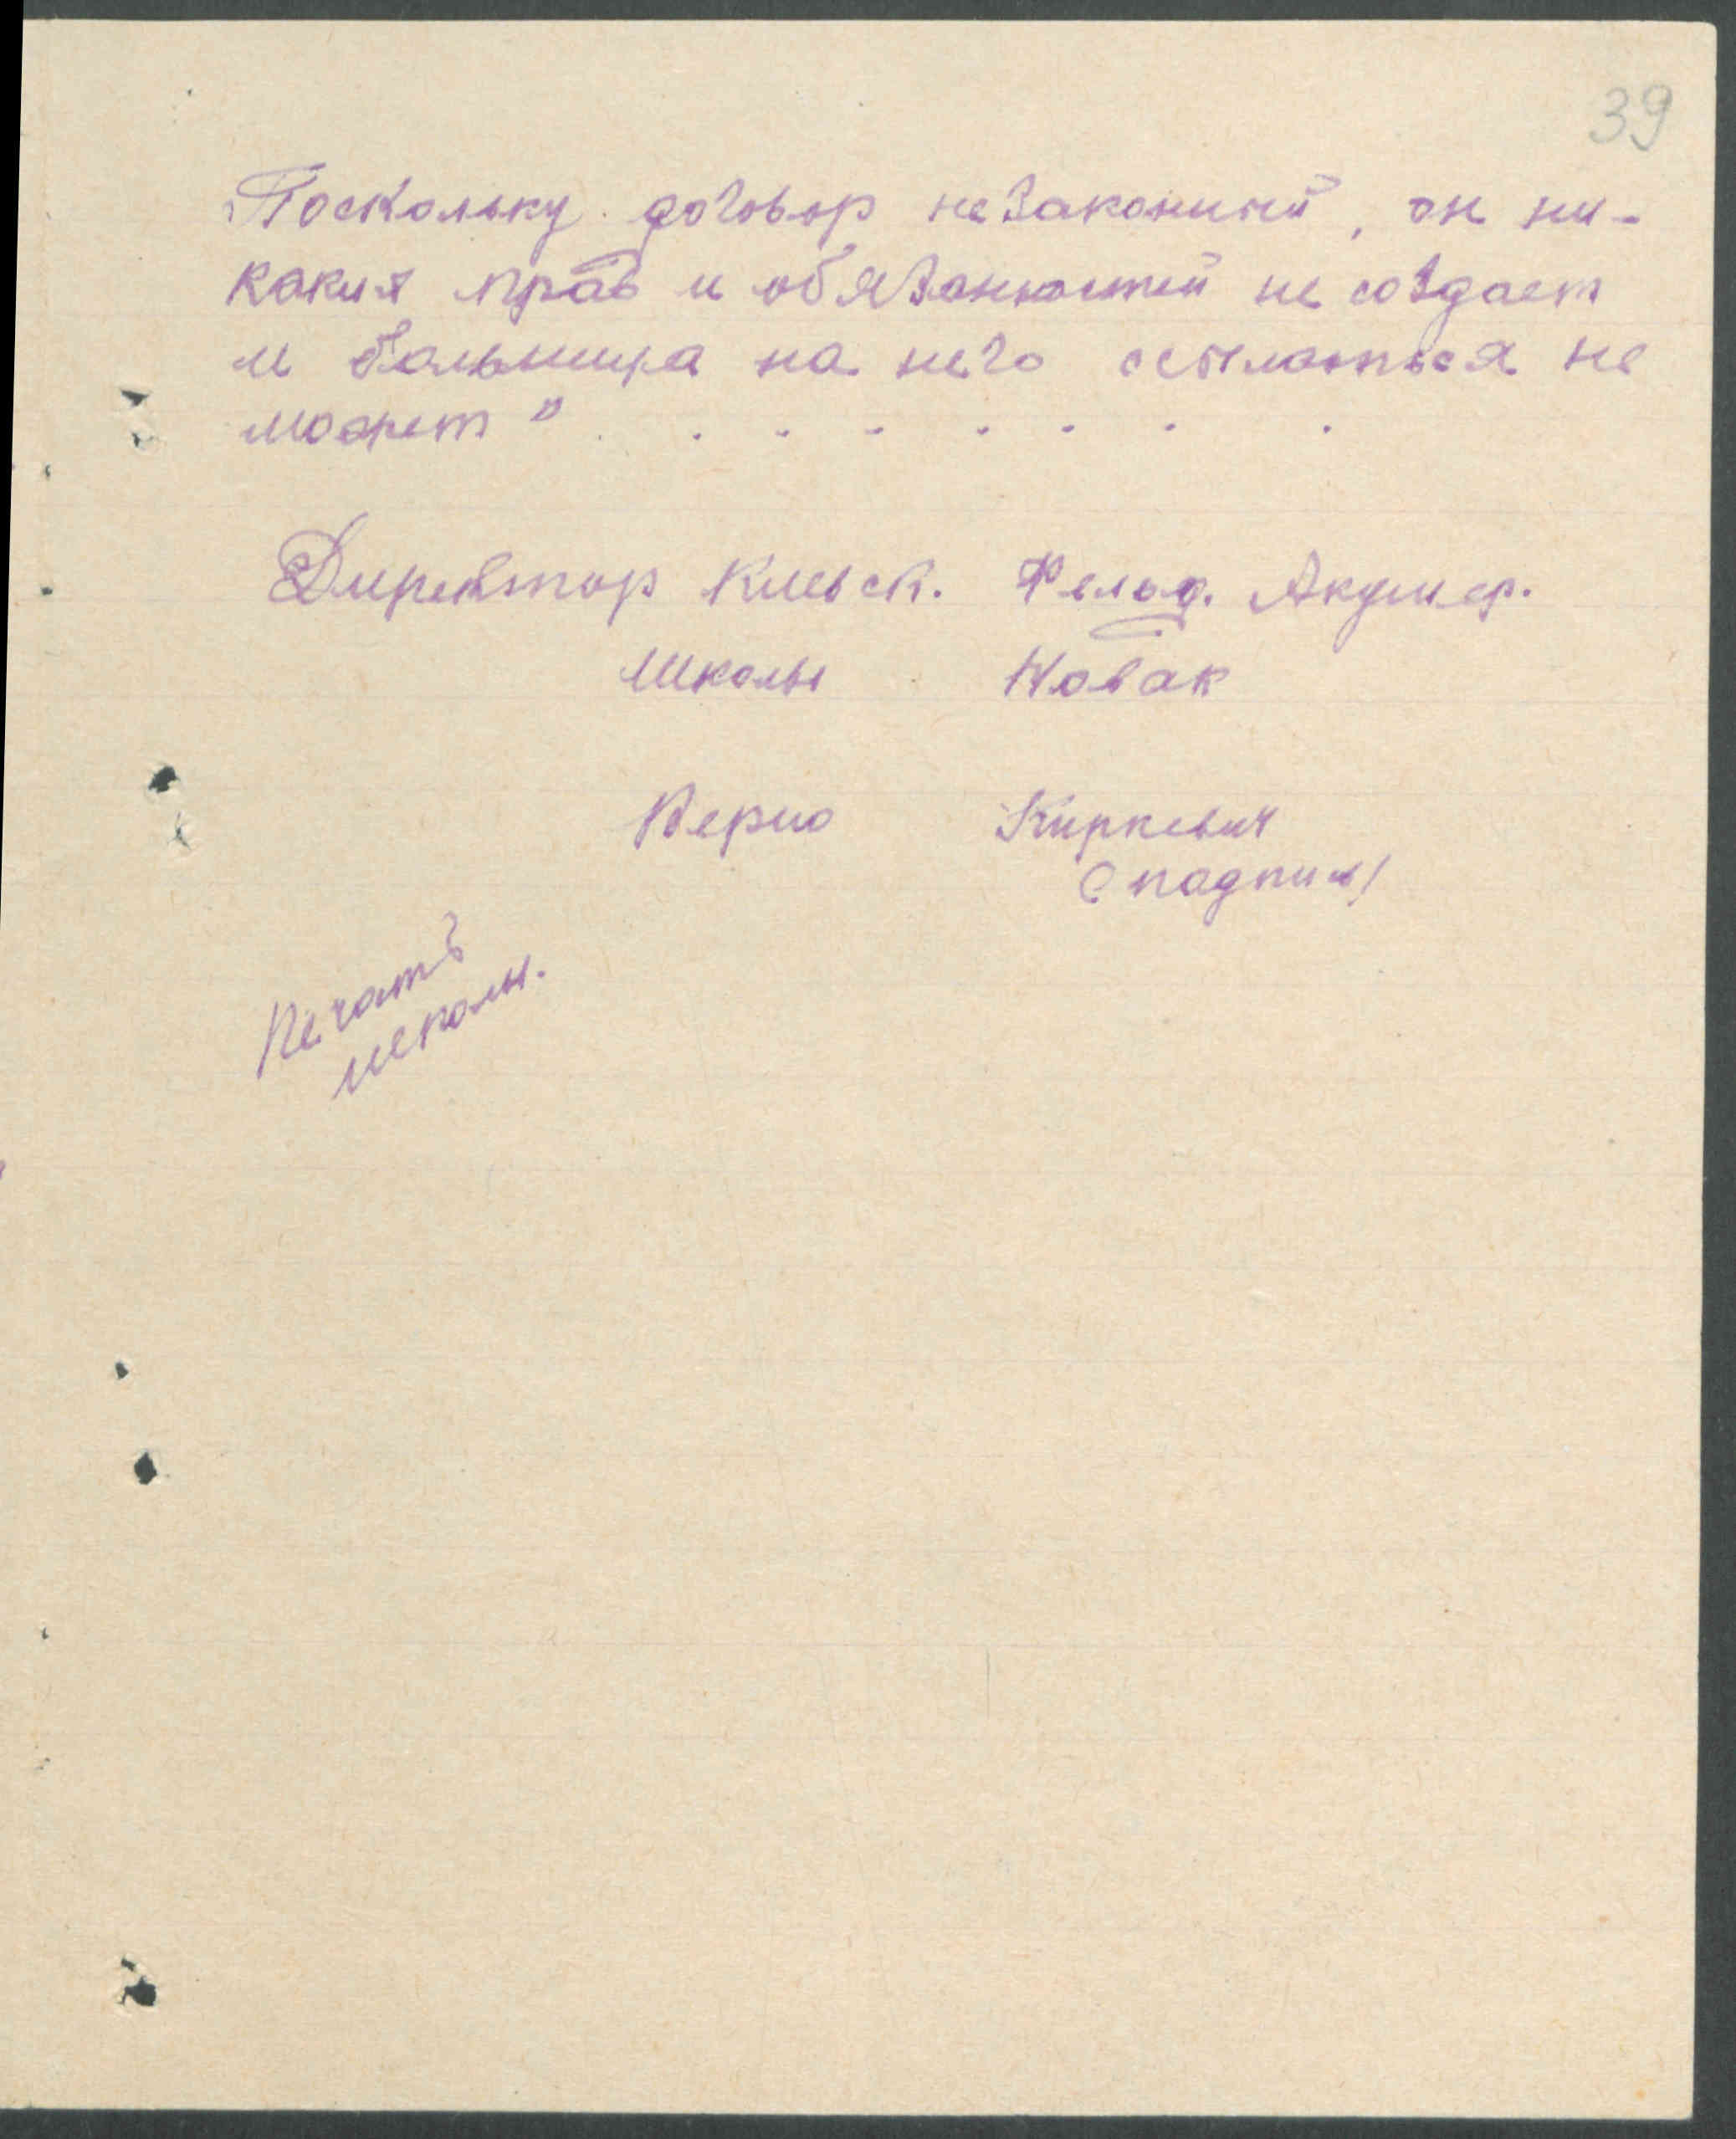 39
„Поскольку договор незаконный, он ни-
каких прав и обязанностей не создает
и больница на него ссылаться не
может" . . . . . . . .
Директор Киевск. Фельд. Акушер.
Школы Новак
Верно Киркевич
(подпись)
Печать
школы.